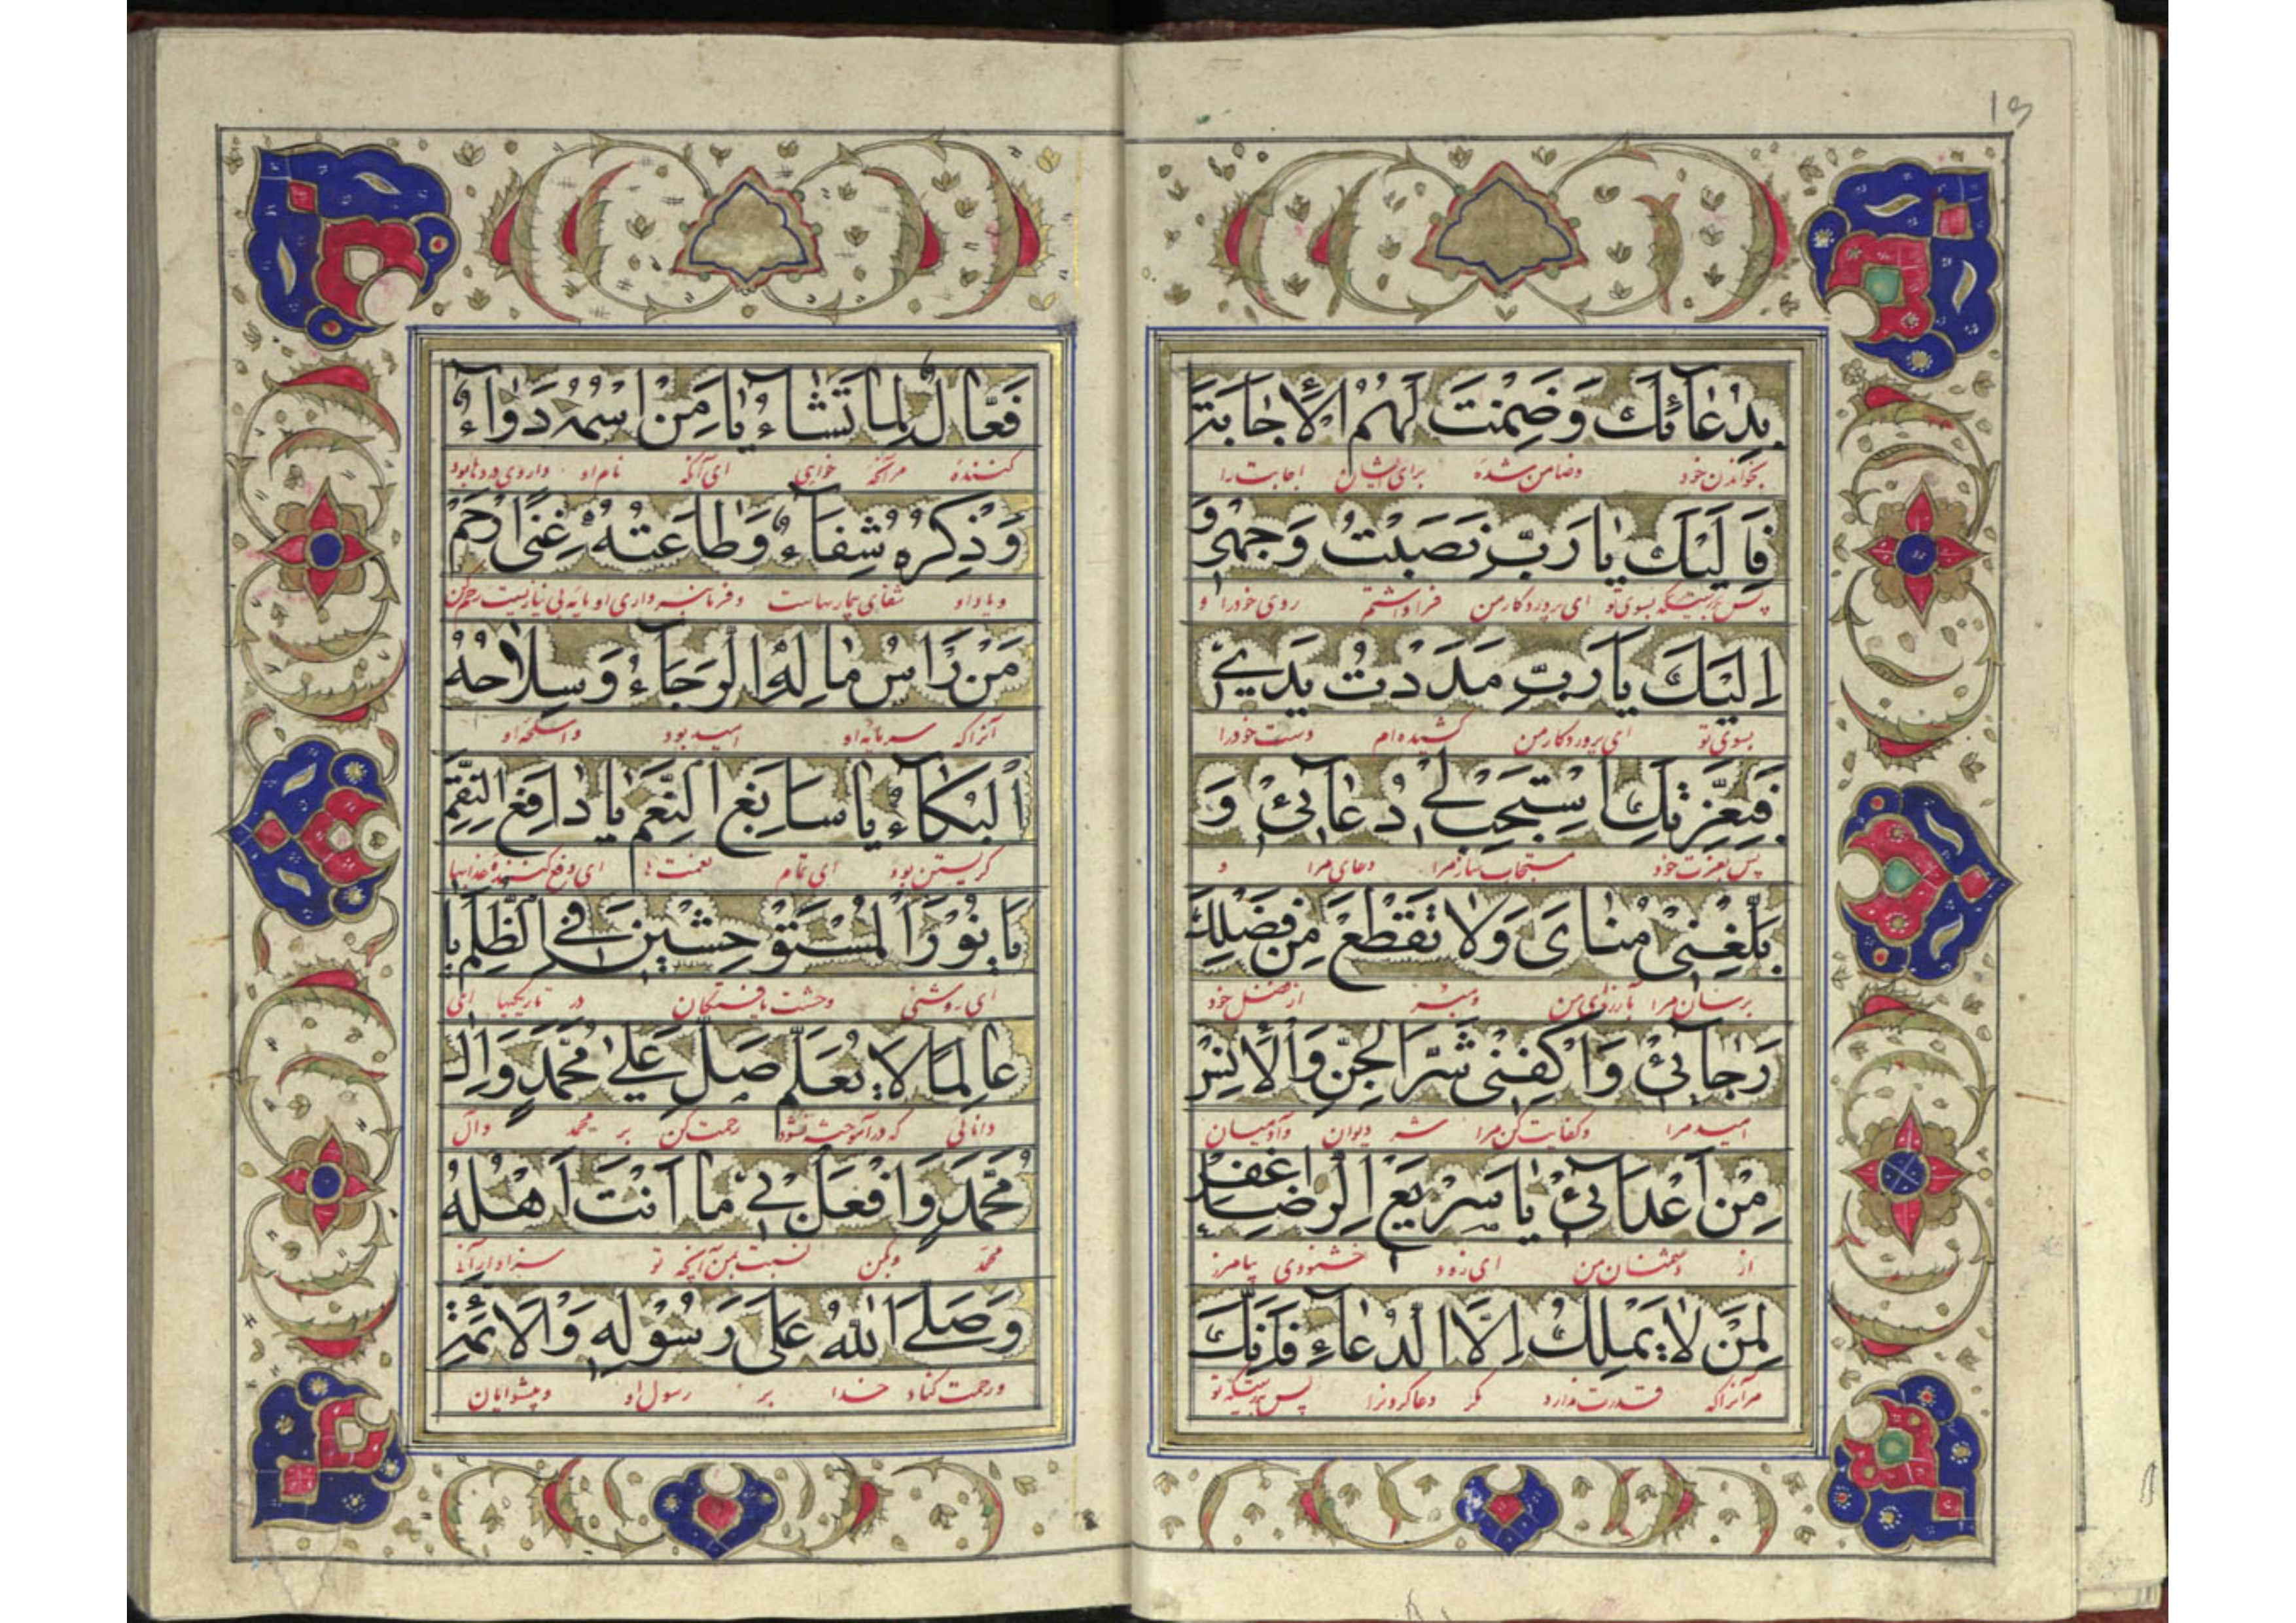 13
بِدُعآئِكَ وَضَمِنْتَ لَهُمُ الْاِجابَةَ
بخواندن خود وضامن شدهٔ برای ایشان اجابت را
فَاِلَيْكَ يا رَبِّ نَصَبْتُ وَجْهى وَ
پس بدرستیکه بسوی تو ای پروردکار من فرا داشتم روی خودرا و
اِلَيْكَ يا رَبِّ مَدَدْتُ يَدى
بسوی تو ای پروردکار من کشیده‌ام دست خودرا
فَبِعِزَّتِكَ اسْتَجِبْ لى دُعآئى وَ
پس بعزت خود مستجاب ساز مرا دعای مرا و
بَلِّغْنى مُناىَ وَلا تَقْطَعْ مِنْ فَضْلِكَ
برسان مرا بارزوی من ومبر از فضل خود
رَجآئى وَاكْفِنى شَرَّ الْجِنِّ وَالْاِنْسِ
امید مرا وکفایت کن مرا شر دیوان وآدمیان
مِنْ اَعْدآئى يا سَريعَ الرِّضا اِغْفِرْ
از دشمنان من ای زود خشنودی بیامرز
لِمَنْ لا يَمْلِكُ اِلَّا الدُّعآءَ فَاِنَّكَ
مر آنرا که قدرت ندارد مکر دعا کردنرا پس بدرستیکه تو
فَعّالٌ لِما تَشآءُ يا مَنِ اسْمُهُ دَوآءٌ
کنندهٔ مر آنچه خواهی ای آنکه نام او داروی دردها بود
وَذِكْرُهُ شِفآءٌ وَطاعَتُهُ غِنًى اِرْحَمْ
ویاد او شفای بیماریهاست وفرمانبرداری او مایه بی نیازیست رحم کن
مَنْ رَاْسُ مالِهِ الرَّجآءُ وَسِلاحُهُ
آنرا که سرمایه او امید بود واسلحه او
الْبُكآءُ يا سابِغَ النِّعَمِ يا دافِعَ النِّقَمِ
کریستن بود ای تمام نعمت ها ای دفع کننده عذابها
يا نُورَ الْمُسْتَوْحِشينَ فِى الظُّلَمِ يا
ای روشنی وحشت یافتکان در تاریکیها ای
عالِمًا لا يُعَلَّمُ صَلِّ عَلى مُحَمَّدٍ وَالِ
دانائی که درآموخته نشود رحمت کن بر محمد وآل
مُحَمَّدٍ وَافْعَلْ بى ما اَنْتَ اَهْلُهُ
محمد وبکن نسبت بمن آنچه تو سزاوار آنی
وَصَلَّى اللهُ عَلى رَسُولِهِ وَالْاَئِمَّةِ
ورحمت کناد خدا بر رسول او وپیشوایان